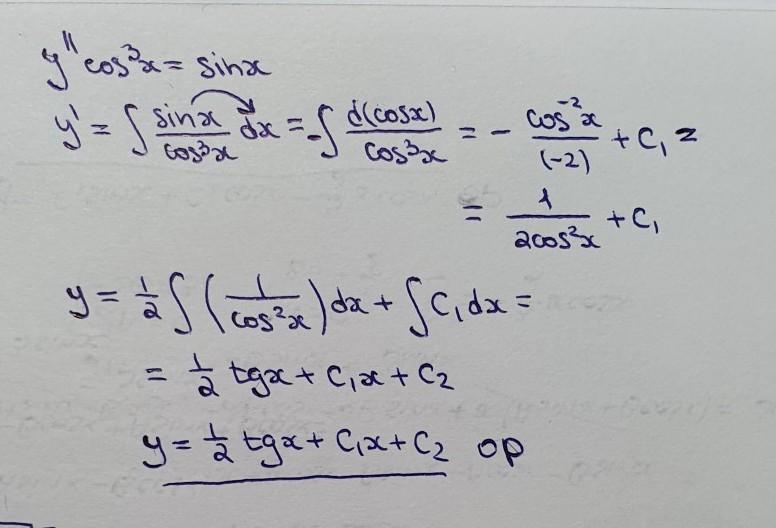 y'' cos³x = sinx
y' = ∫ sinx/cos³x dx = -∫ d(cosx)/cos³x = - cos⁻²x/(-2) + C₁ =
= 1/2cos²x + C₁
y = 1/2 ∫ (1/cos²x) dx + ∫ C₁dx =
= 1/2 tgx + C₁x + C₂
y = 1/2 tgx + C₁x + C₂ op